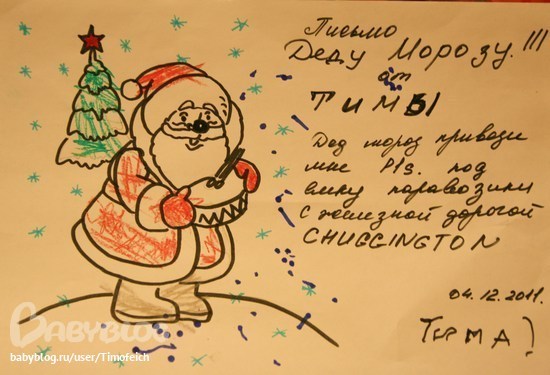 Письмо
Деду Морозу!!!
от
ТИМЫ
Дед мороз привези
мне Pls. под
ёлку паравозики
с железной дорогой
CHUGGINGTON
04.12.2011.
Тима)
BABYBLOG
babyblog.ru/user/Timofeich